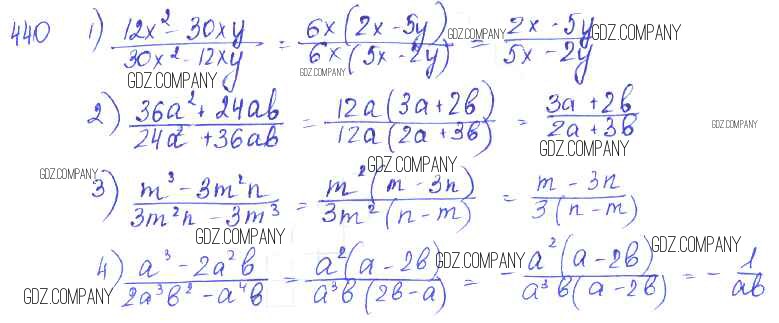 440 1) (12x² - 30xy)/(30x² - 12xy) = 6x(2x - 5y)/6x(5x - 2y) = (2x - 5y)/(5x - 2y) GDZ.COMPANY
GDZ.COMPANY GDZ.COMPANY
2) (36a² + 24ab)/(24a² + 36ab) = 12a(3a + 2b)/12a(2a + 3b) = (3a + 2b)/(2a + 3b) GDZ.COMPANY
GDZ.COMPANY GDZ.COMPANY GDZ.COMPANY
3) (m³ - 3m²n)/(3m²n - 3m³) = m²(m - 3n)/3m²(n - m) = (m - 3n)/3(n - m)
GDZ.COMPANY
4) (a³ - 2a²b)/(2a³b² - a⁴b) = a²(a - 2b)/a³b(2b - a) = - a²(a - 2b)/a³b(a - 2b) = - 1/ab
GDZ.COMPANY GDZ.COMPANY GDZ.COMPANY